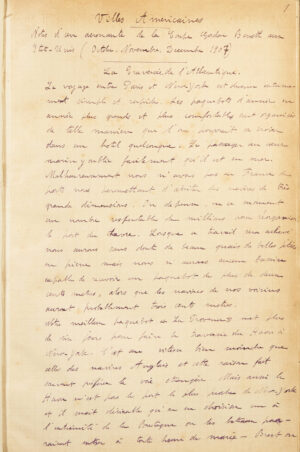 1
Villes Américaines
Notes d'un aéronaute de la Coupe Gordon Benett aux
Etats-Unis (Octobre. Novembre. Décembre 1907)
La Traversée de l'Atlantique.
Le voyage entre Paris et New-York est devenu extrême-
ment simple et rapide. Les paquebots d'année en
année plus grands et plus confortables sont organisés
de telle manière que l'on pourrait se croire
dans un hôtel quelconque. Le passage au cœur
marin y oublie facilement qu'il est en mer.
Malheureusement nous n'avons pas en France de
ports nous permettant d'abriter des navires de très
grande dimensions. On dépense en ce moment
un nombre respectable de millions pour réorganiser
le port du Havre. Lorsque ce travail sera achevé
nous aurons sans doute de beaux quais de belles jetées
en pierre mais nous n'aurons aucun bassin
capable de recevoir un paquebot de plus de deux
cents mètres, alors que les navires de nos voisins
auront probablement trois cents mètres.
Notre meilleur paquebot est La Provence met plus
de six jours pour faire la traversée du Havre à
New-York. C'est une vitesse bien moindre que
celles des navires Anglais et cette raison fait
souvent préférer la voie étrangère. Mais aussi le
Havre n'est pas le port le plus proche de New-York
et il serait désirable qu'on en choisisse un à
l'extrémité de la Bretagne où les bateaux pour-
raient entrer à toute heure de marée. Brest ou